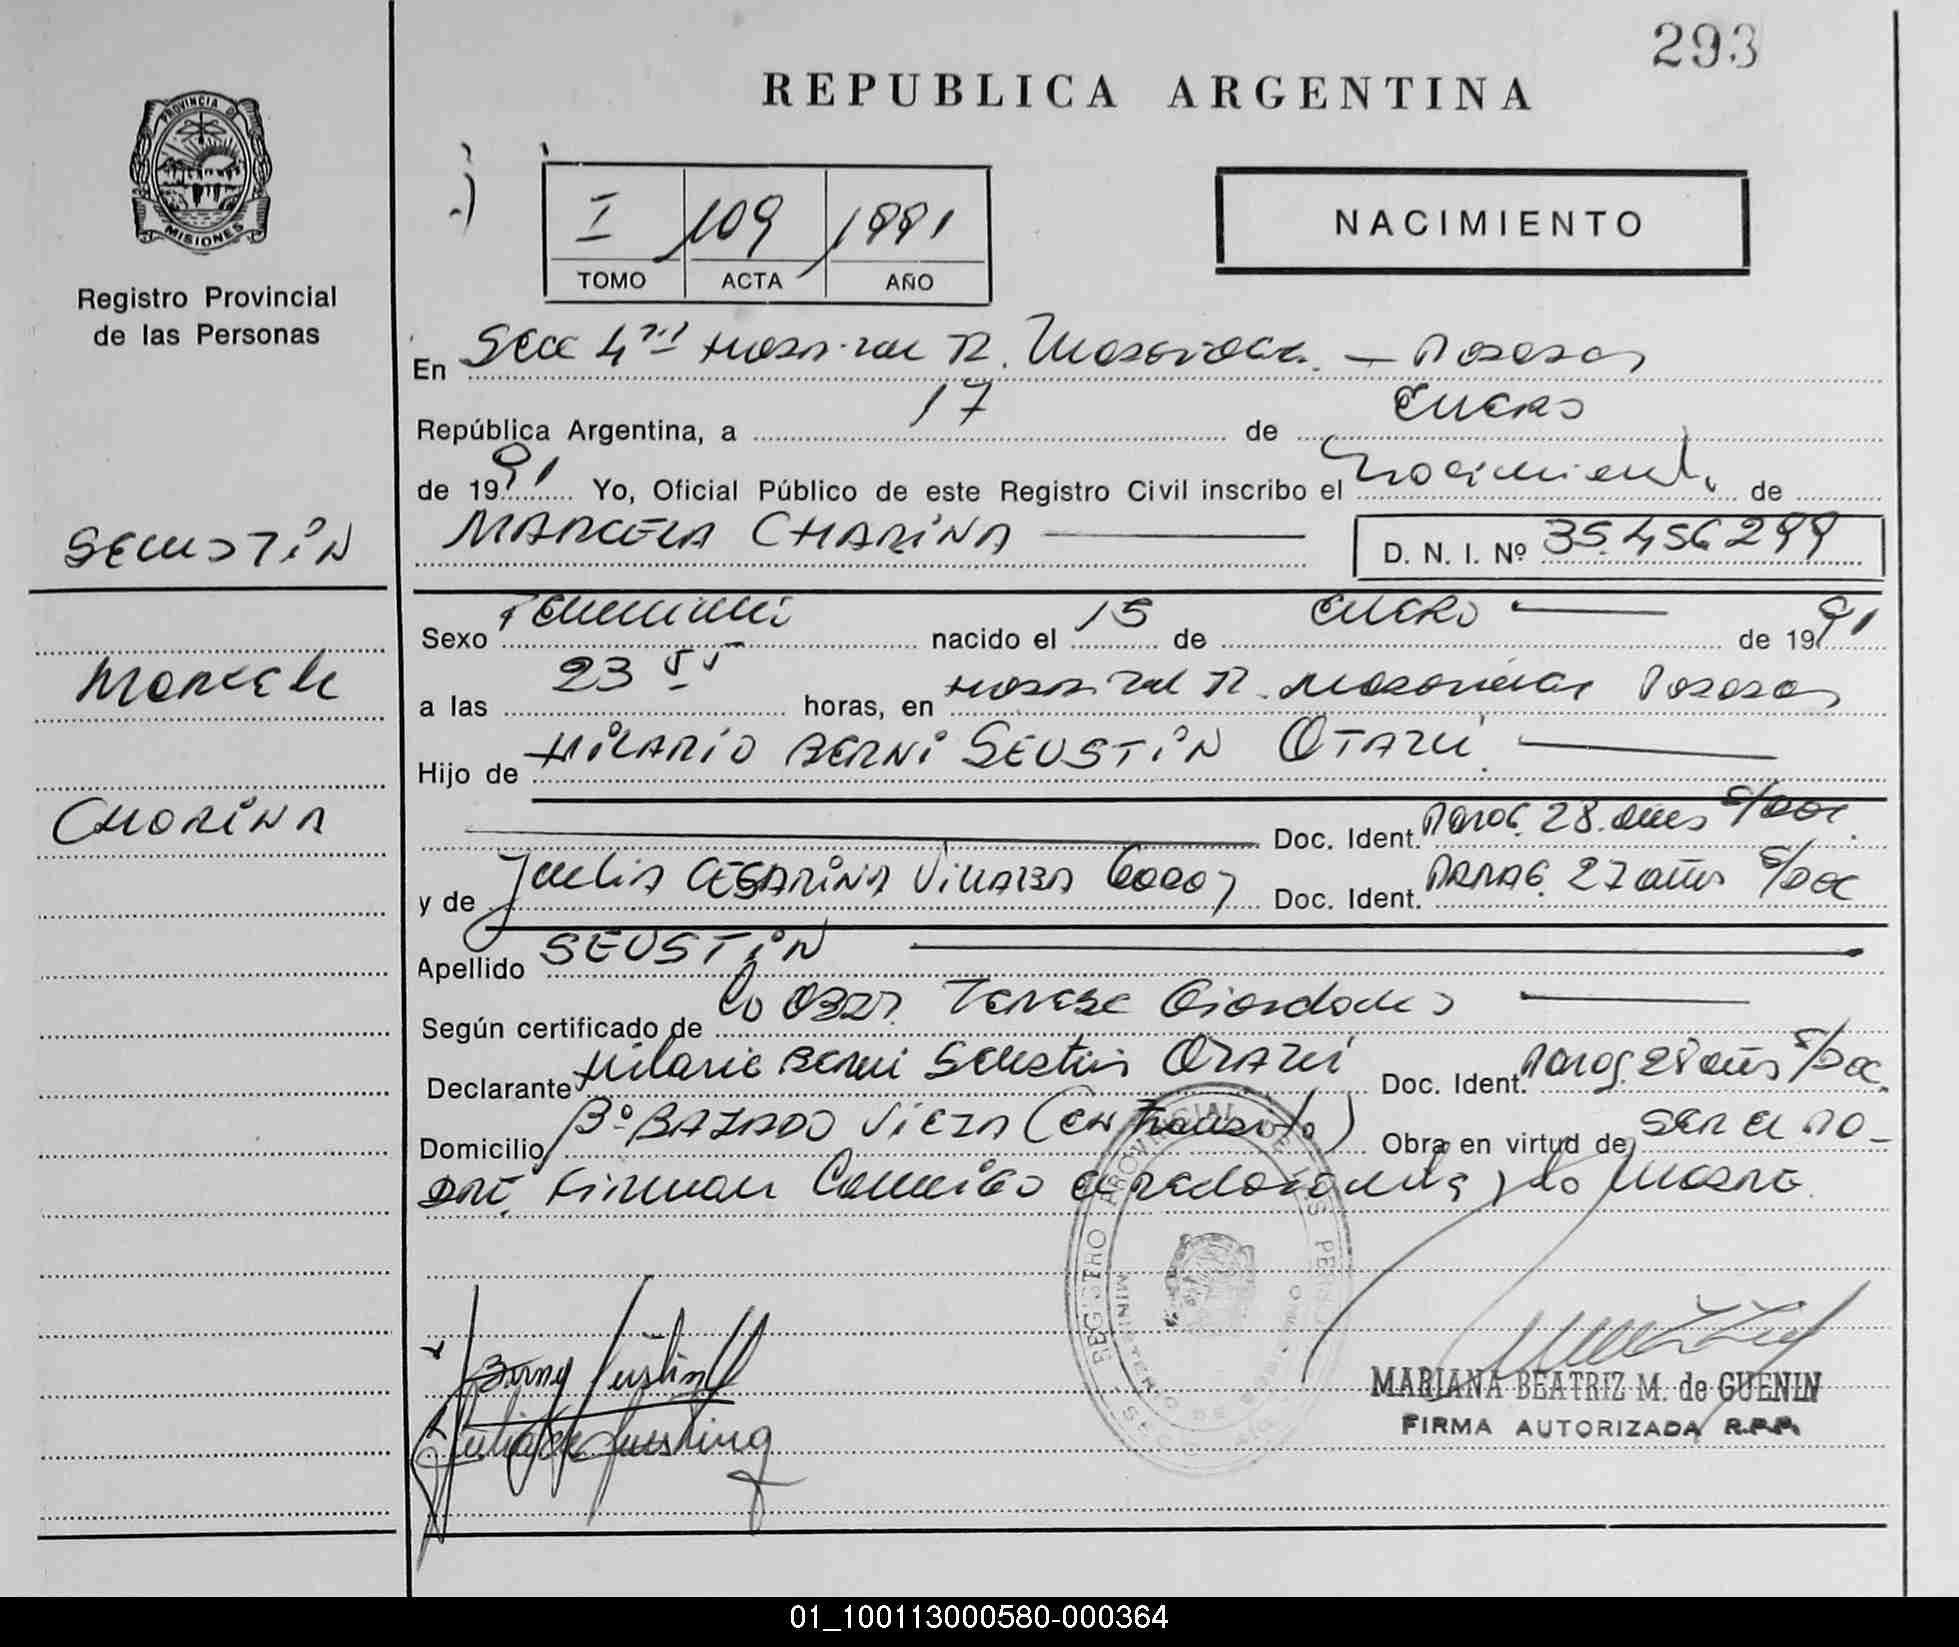 293
REPUBLICA ARGENTINA
PROVINCIA DE
MISIONES
Registro Provincial
de las Personas
I 109 1991
TOMO ACTA AÑO
NACIMIENTO
En Secc 4ta Hospital R. Madariaga - Posadas
República Argentina, a 17 de Enero
de 1991 Yo, Oficial Público de este Registro Civil inscribo el nacimiento de
MARCELA CHARINA D. N. I. Nº 35.456299
SEUSTIN
Marcela
CHARINA
Sexo Femenino nacido el 15 de Enero de 1991
a las 23 55 horas, en Hospital R. Madariaga Posadas
Hijo de HILARIO BERNI SEUSTIN OTAZU
Doc. Ident. PARAG. 28 años S/DOC.
y de Julia CESARINA VILLALBA GODOY Doc. Ident. PARAG. 27 años S/DOC
Apellido SEUSTIN
Según certificado de la Obst.
Declarante Hilario Berni Seustin OTAZU Doc. Ident. PARAG. 28 años S/Doc.
Domicilio Bº BAJADO VIEJA (en Transito) Obra en virtud de SER EL PA-
DRE. Firman Conmigo el declarante y la Madre.
REGISTRO PROVINCIAL DE LAS
MARIANA BEATRIZ M. de GUENIN
FIRMA AUTORIZADA R.P.P.
01_100113000580-000364